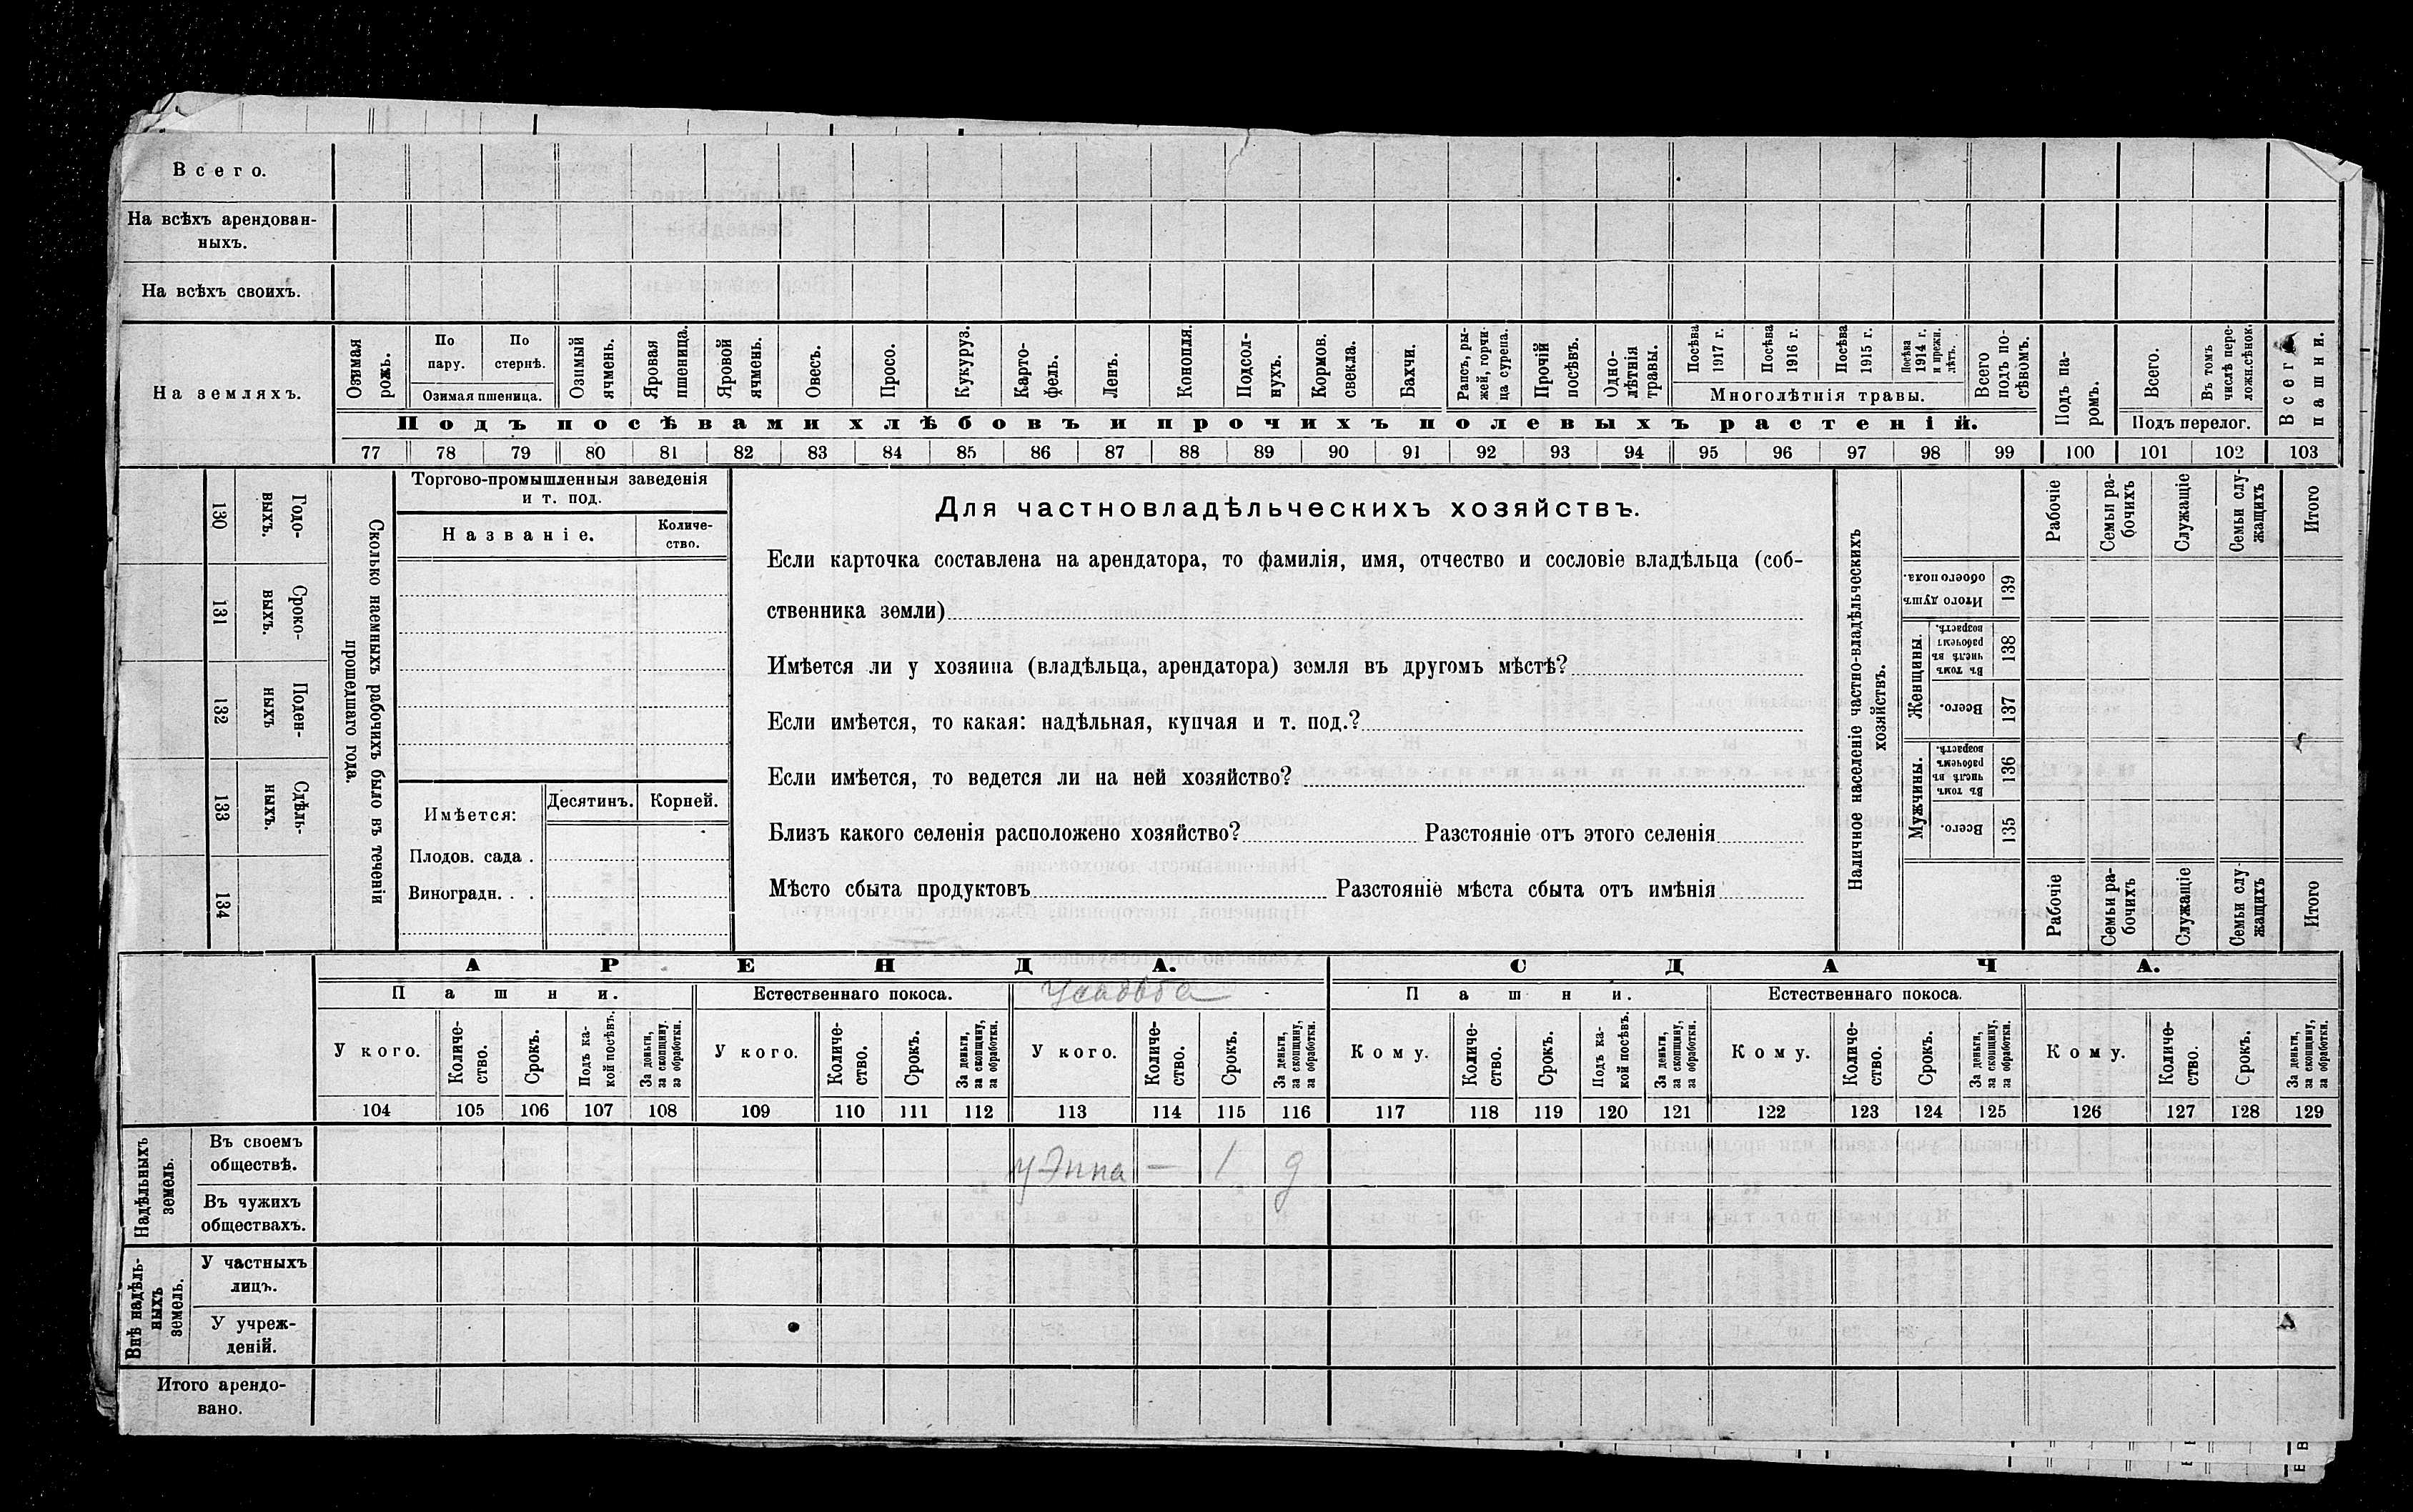 Всего.
На всѣхъ арендован-
ныхъ.
На всѣхъ своихъ.
На земляхъ.
Озимая рожь.
По пару.
По стернѣ.
Озимая пшеница.
Озимый ячмень.
Яровая пшеница.
Яровой ячмень.
Овесъ.
Просо.
Кукуруз.
Карто-
фель.
Ленъ.
Конопля.
Подсол-
нухъ.
Кормов.
свекла.
Бахчи.
Рапсъ, ры-
жей, горчи-
ца сурепа.
Прочій посѣвъ.
Одно-
лѣтнія
травы.
Посѣва 1917 г.
Посѣва 1916 г.
Посѣва 1915 г.
Посѣва 1914 г. и прежн. лѣтъ.
Многолѣтнія травы.
Всего подъ по-
сѣвомъ.
Подъ па-
ромъ.
Всего.
Въ томъ числѣ пере-
ложн.сѣнок.
Подъ перелог.
Всего пашни.
Подъ посѣвами хлѣбовъ и прочихъ полевыхъ растеній.
77 78 79 80 81 82 83 84 85 86 87 88 89 90 91 92 93 94 95 96 97 98 99 100 101 102 103
130 Годо-
выхъ.
131 Сроко-
выхъ.
132 Поден-
ныхъ
133 Сдѣль-
ныхъ.
134
Сколько наемныхъ рабочихъ было въ теченіи
прошедшаго года.
Торгово-промышленныя заведенія
и т. под.
Названіе.
Количе-
ство.
Имѣется:
Десятинъ.
Корней.
Плодов. сада .
Виноградн. . .
Для частновладѣльческихъ хозяйствъ.
Если карточка составлена на арендатора, то фамилія, имя, отчество и сословіе владѣльца (соб-
ственника земли)
Имѣется ли у хозяина (владѣльца, арендатора) земля въ другомъ мѣстѣ?
Если имѣется, то какая: надѣльная, купчая и т. под.?
Если имѣется, то ведется ли на ней хозяйство?
Близъ какого селенія расположено хозяйство? Разстояніе отъ этого селенія
Мѣсто сбыта продуктовъ Разстояніе мѣста сбыта отъ имѣнія
Наличное населеніе частно-владѣльческихъ
хозяйствъ.
Рабочіе
Семьи ра-
бочихъ
Служащіе
Семьи слу-
жащихъ
Итого
Итого душъ обоего пола. 139
Женщины.
Въ томъ числѣ въ рабочемъ возрастѣ. 138
Всего. 137
Мужчины.
Въ томъ числѣ въ рабочемъ возрастѣ. 136
Всего. 135
Рабочіе
Семьи ра-
бочихъ
Служащіе
Семьи слу-
жащихъ
Итого
АРЕНДА.
СДАЧА.
Пашни.
Естественнаго покоса.
Усадьба
Пашни.
Естественнаго покоса.
У кого.
Количе-
ство.
Срокъ.
Подъ ка-
кой посѣвъ.
За деньги,
за скопщину,
за обработки.
У кого.
Количе-
ство.
Срокъ.
За деньги,
за скопщину,
за обработки.
У кого.
Количе-
ство.
Срокъ.
За деньги,
за скопщину,
за обработки.
Кому.
Количе-
ство.
Срокъ.
Подъ ка-
кой посѣвъ.
За деньги,
за скопщину,
за обработки.
Кому.
Количе-
ство.
Срокъ.
За деньги,
за скопщину,
за обработки.
Кому.
Количе-
ство.
Срокъ.
За деньги,
за скопщину,
за обработки.
104 105 106 107 108 109 110 111 112 113 114 115 116 117 118 119 120 121 122 123 124 125 126 127 128 129
Надѣльныхъ
земель.
Въ своемъ
обществѣ.
у Эппа — 1 д
Въ чужихъ
обществахъ.
Внѣ надѣль-
ныхъ
земель.
У частныхъ
лицъ.
У учреж-
деній.
Итого арендо-
вано.